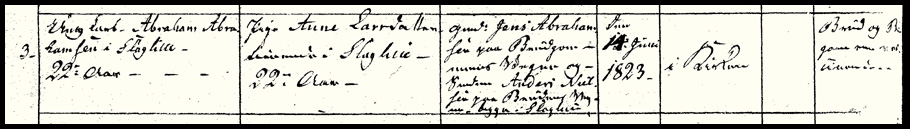 3.
Ung Karl Abraham Abra-
hamsen i Slaglille
22 Aar
Pige Anne Larsdatter
i Slaglille
22 Aar
Gmd. Jens Abraham-
sen paa Brudgom-
mens Vegne og
Anders Niel-
sen paa Brudens Veg-
ne, begge i Slaglille
Den
14 Juni
1823
i Kirken
Brud og
gom